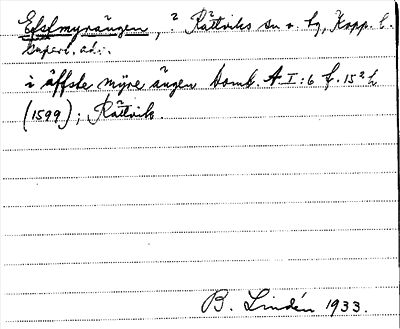 Efstmyrängen, ? Rättviks sn o. tg, Kopp. l.
Superl. adj.
i äffste myre ängen Domb. A I: 6 f. 152 h
(1599); Rättvik.
B. Lindén 1933.